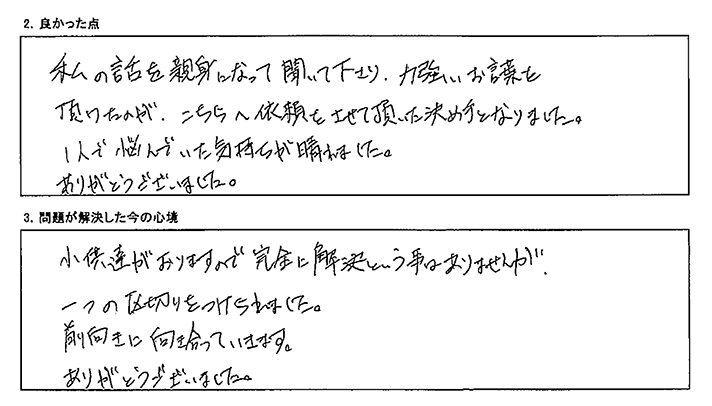 2. 良かった点
私の話を親身になって聞いて下さり、力強いお言葉を
頂けたのが、こちらへ依頼をさせて頂いた決め手となりました。
1人で悩んでいた気持ちが晴れました。
ありがとうございました。
3. 問題が解決した今の心境
小供達がおりますので完全に解決という事はありませんが、
一つの区切りをつけられました。
前向きに向き合っていきます。
ありがとうございました。